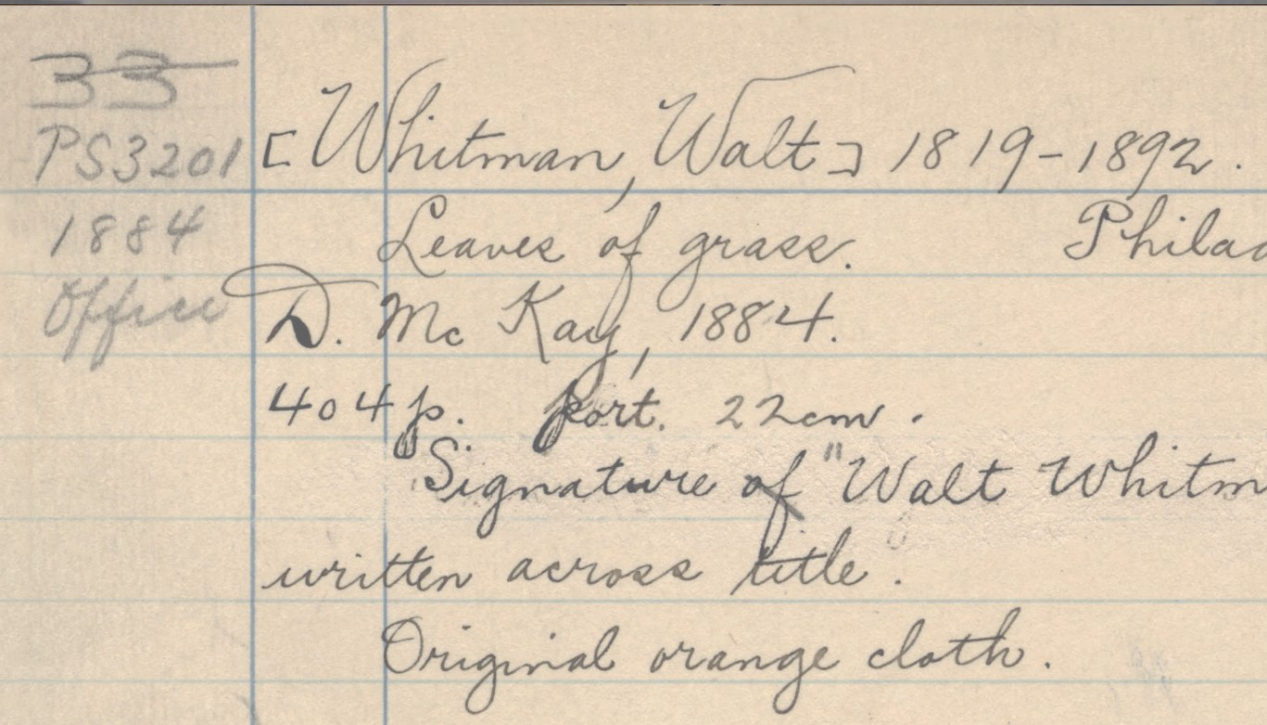 33
PS3201 [Whitman, Walt] 1819-1892.
1884 Leaves of grass. Philad
Office D. McKay, 1884.
404 p. port. 22cm.
Signature of "Walt Whitm
written across title.
Original orange cloth.